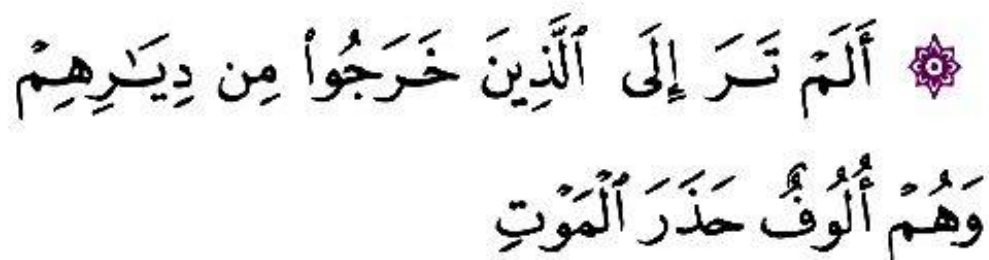 ۞ أَلَمۡ تَرَ إِلَى ٱلَّذِينَ خَرَجُواْ مِن دِيَٰرِهِمۡ
وَهُمۡ أُلُوفٌ حَذَرَ ٱلۡمَوۡتِ